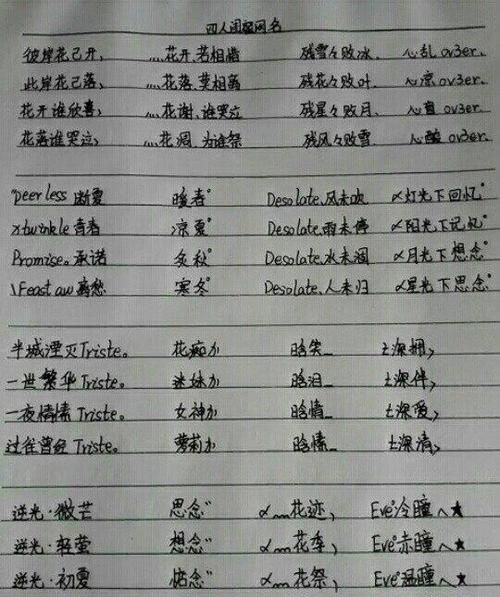 四人闺蜜网名
彼岸花已开, ﹏花开、若相惜 残雪々败冰、 心乱 ov3er.
此岸花已落, ﹏花落、莫相离 残花々败叶、 心凉 ov3er.
花开谁欣喜, ﹏花谢、谁哭泣 残星々败月、 心 ov3er.
花落谁哭泣, ﹏花凋、为谁祭 残风々败雪 心酸 ov3er.
"peerless 断夏 暖春° Desolate、风未吹 〆灯光下回忆"
xtwinkle 青春 凉夏° Desolate、雨未停 〆阳光下记忆"
Promise。承诺 冬秋° Desolate、水未凅 〆月光下想念"
\Feast aw 离愁 寒冬° Desolate、人未归 〆星光下思念"
半城湮灭Triste。 花痴か 晗笑_ 士深拥,
一世繁华Triste。 迷妹か 晗泪_ 士深伴,
一夜情愫Triste。 女神か 晗情_ 士深爱,
过往曾经Triste。 萝莉か 晗愫_ 士深清,
逆光·微芒 思念" 〆﹏花迹, Eve°冷瞳へ★
逆光·轻萤 想念" 〆﹏花季, Eve°赤瞳へ★
逆光·初夏 惦念" 〆﹏花祭, Eve°温瞳へ★